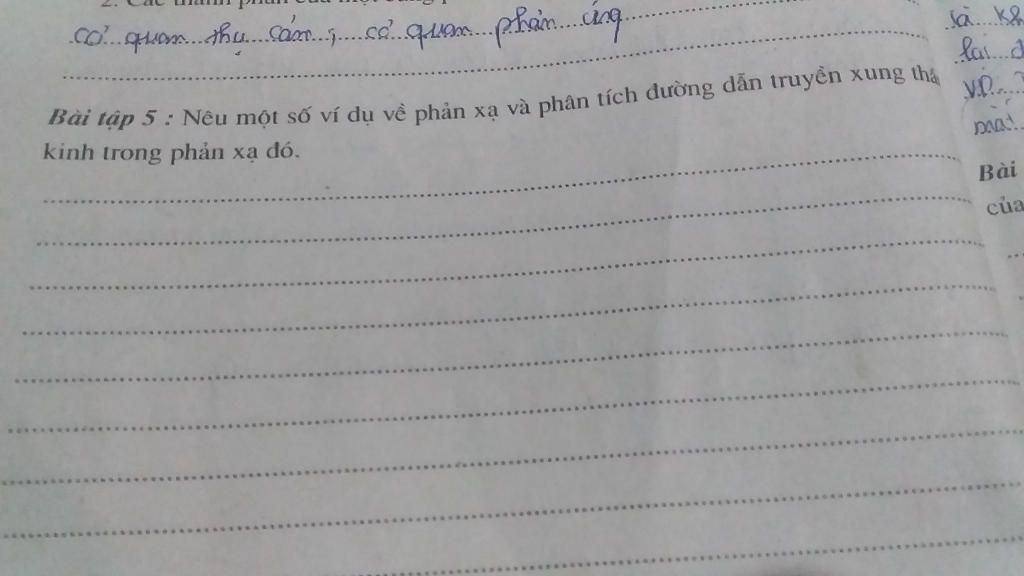 2. Các thành phần của một cung
cơ quan thụ cảm ; cơ quan phản ứng
Bài tập 5 : Nêu một số ví dụ về phản xạ và phân tích đường dẫn truyền xung thầ
kinh trong phản xạ đó.
lại
mắt
Bài
của